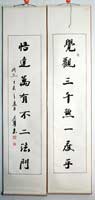 覺觀三千無一度乎
悟達萬有不二法門